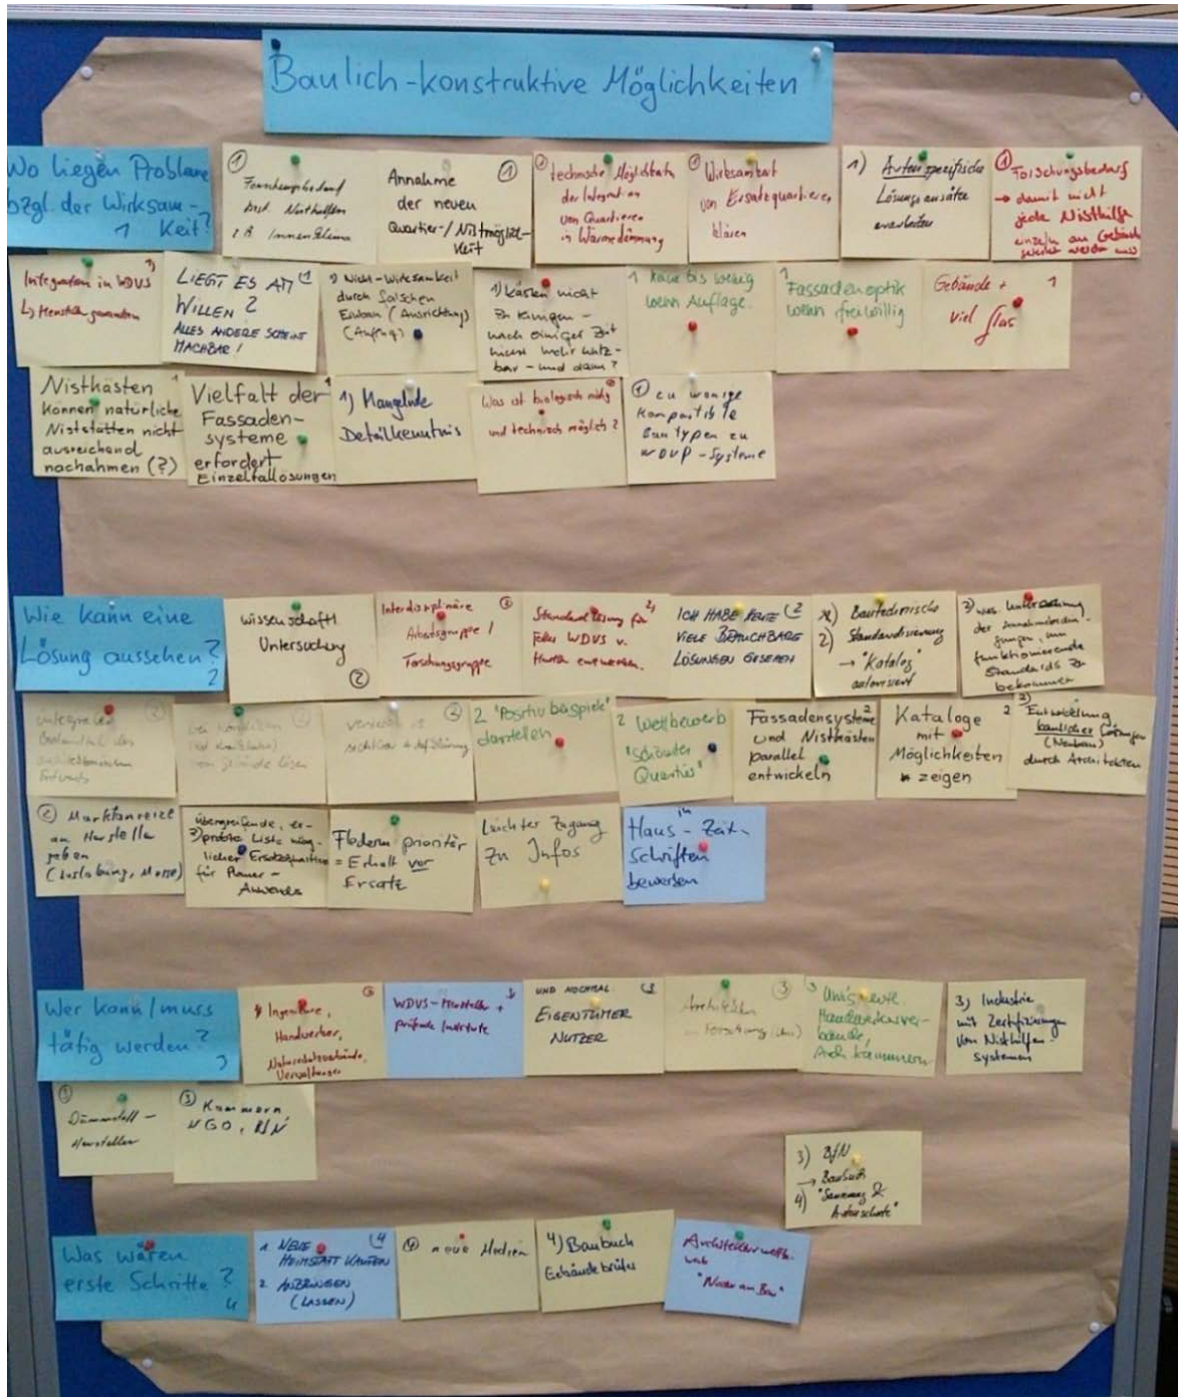 Baulich-konstruktive Möglichkeiten
Wo liegen Probleme
bzgl. der Wirksam-
keit?
1
①
Forschungsbedarf
Nisthilfen
z.B. Innenklima
①
Annahme
der neuen
Quartier-/Nistmöglich-
keit
①
technische Möglichkeiten
der Integration
von Quartieren
in Wärmedämmung
①
Wirksamkeit
von Ersatzquartieren
klären
1) Artenspezifische
Lösungsansätze
erarbeiten
①
Forschungsbedarf
→ damit nicht
jede Nisthilfe
einzeln am Gebäude
werden muss
1)
Integration in WDVS
LIEGT ES AM
WILLEN?
ALLES ANDERE SCHEINT
MACHBAR!
1) Nicht-Wirksamkeit
durch falschen
Einbau (Ausrichtung)
(Anflug)
1) Kästen nicht
zu reinigen –
nach einiger Zeit
nicht mehr nutz-
bar – und dann?
1 Kaum bis wenig
wenn Auflage.
1
Fassadenoptik
wenn freiwillig
Gebäude + 1
viel Glas
Nistkästen 1
können natürliche
Niststätten nicht
ausreichend
nachahmen (?)
Vielfalt der 1
Fassaden-
systeme
erfordert
Einzelfallösungen
1) Mangelnde
Detailkenntnis
Was ist biologisch nötig
und technisch möglich?
① zu wenige
kompatible
Bautypen zu
WDVP-Systeme
Wie kann eine
Lösung aussehen?
2
wissenschaftl.
Untersuchung
②
Interdisziplinäre ②
Arbeitsgruppe /
Forschungsgruppe
Standardlösung für 2)
jedes WDVS v.
entwickeln.
ICH HABE HEUTE 2
VIELE BRAUCHBARE
LÖSUNGEN GESEHEN
Bautechnische
2) Standardisierung
→ "Katalog"
autorisiert
wiss. Untersuchung
der
um
funktionierende
Standards zu
bekommen
②
architektonischen
Entwurfs
②
②
2 "Positivbeispiele"
darstellen
2 Wettbewerb
"schönster
Quartier"
Fassadensysteme 2
und Nistkästen
parallel
entwickeln
Kataloge 2
mit
Möglichkeiten
zeigen
2) Entwicklung
baulicher Lösungen
(Neubau)
durch Architekten
② Marktanreize
an Hersteller
geben
(Auslobung, Messe)
übergreifende, er-
probte Liste mög-
licher Ersatzquartiere
für Planer –
Anwender
= Erhalt vor
Ersatz
Leichter Zugang
zu Infos
in
Haus-Zeit-
schriften
bewerben
Wer kann/muss
tätig werden?
3
③
Ingenieure,
Handwerker,
Naturschutzverbände,
Verwaltungen
3
WDVS-Hersteller +
prüfende Institute
UND NOCHMAL: 3
EIGENTÜMER
NUTZER
Architekten ③
Forschung
3
Handwerksver-
bände,
Arch. kammern
3) Industrie
mit Zertifizierung
von Nisthilfen-
systemen
③
Dämmstoff-
Hersteller
③ Kammern
NGO, BfN
3) BfN
→ Baubuch
4) "Sanierung &
Artenschutz"
Was wären
erste Schritte?
4
1. NEUE 4
HEIMSTATT KAUFEN
2. ANBRINGEN
(LASSEN)
④ neue Medien
4) Baubuch
Gebäudebrüter
Architektenwettb-
werb
"Natur am Bau"